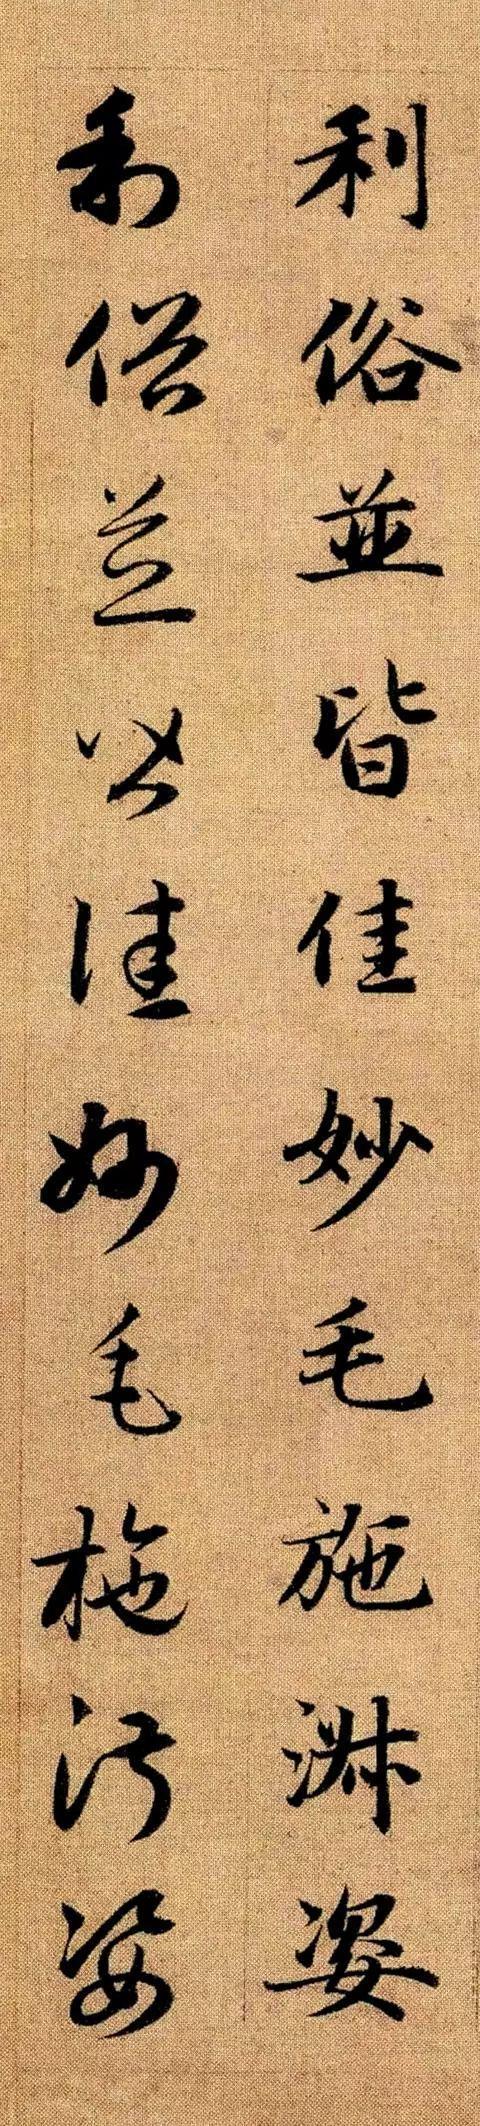 利俗並皆佳妙毛施淑姿
利俗並皆佳妙毛施淑姿